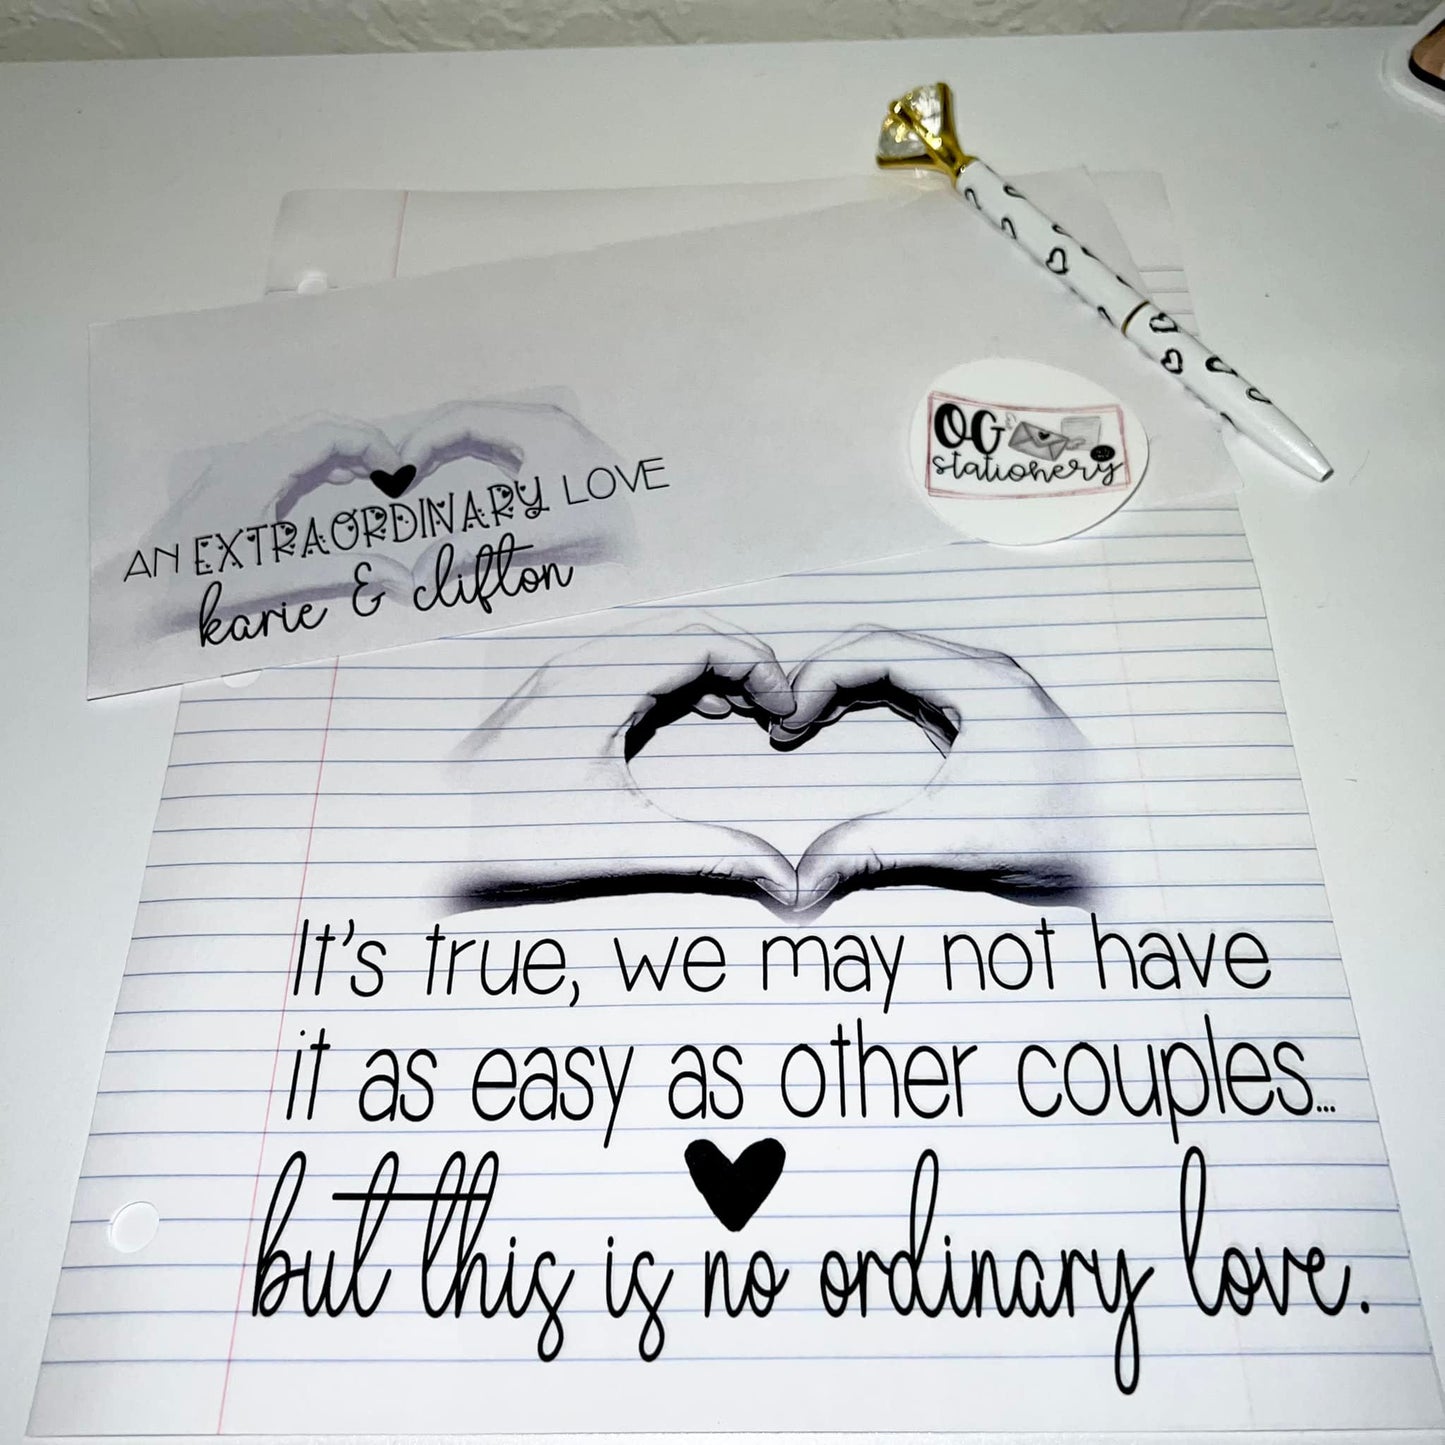 AN EXTRAORDINARY LOVE
karie & clifton
OG
stationery
It's true, we may not have
it as easy as other couples...
but this is no ordinary love.